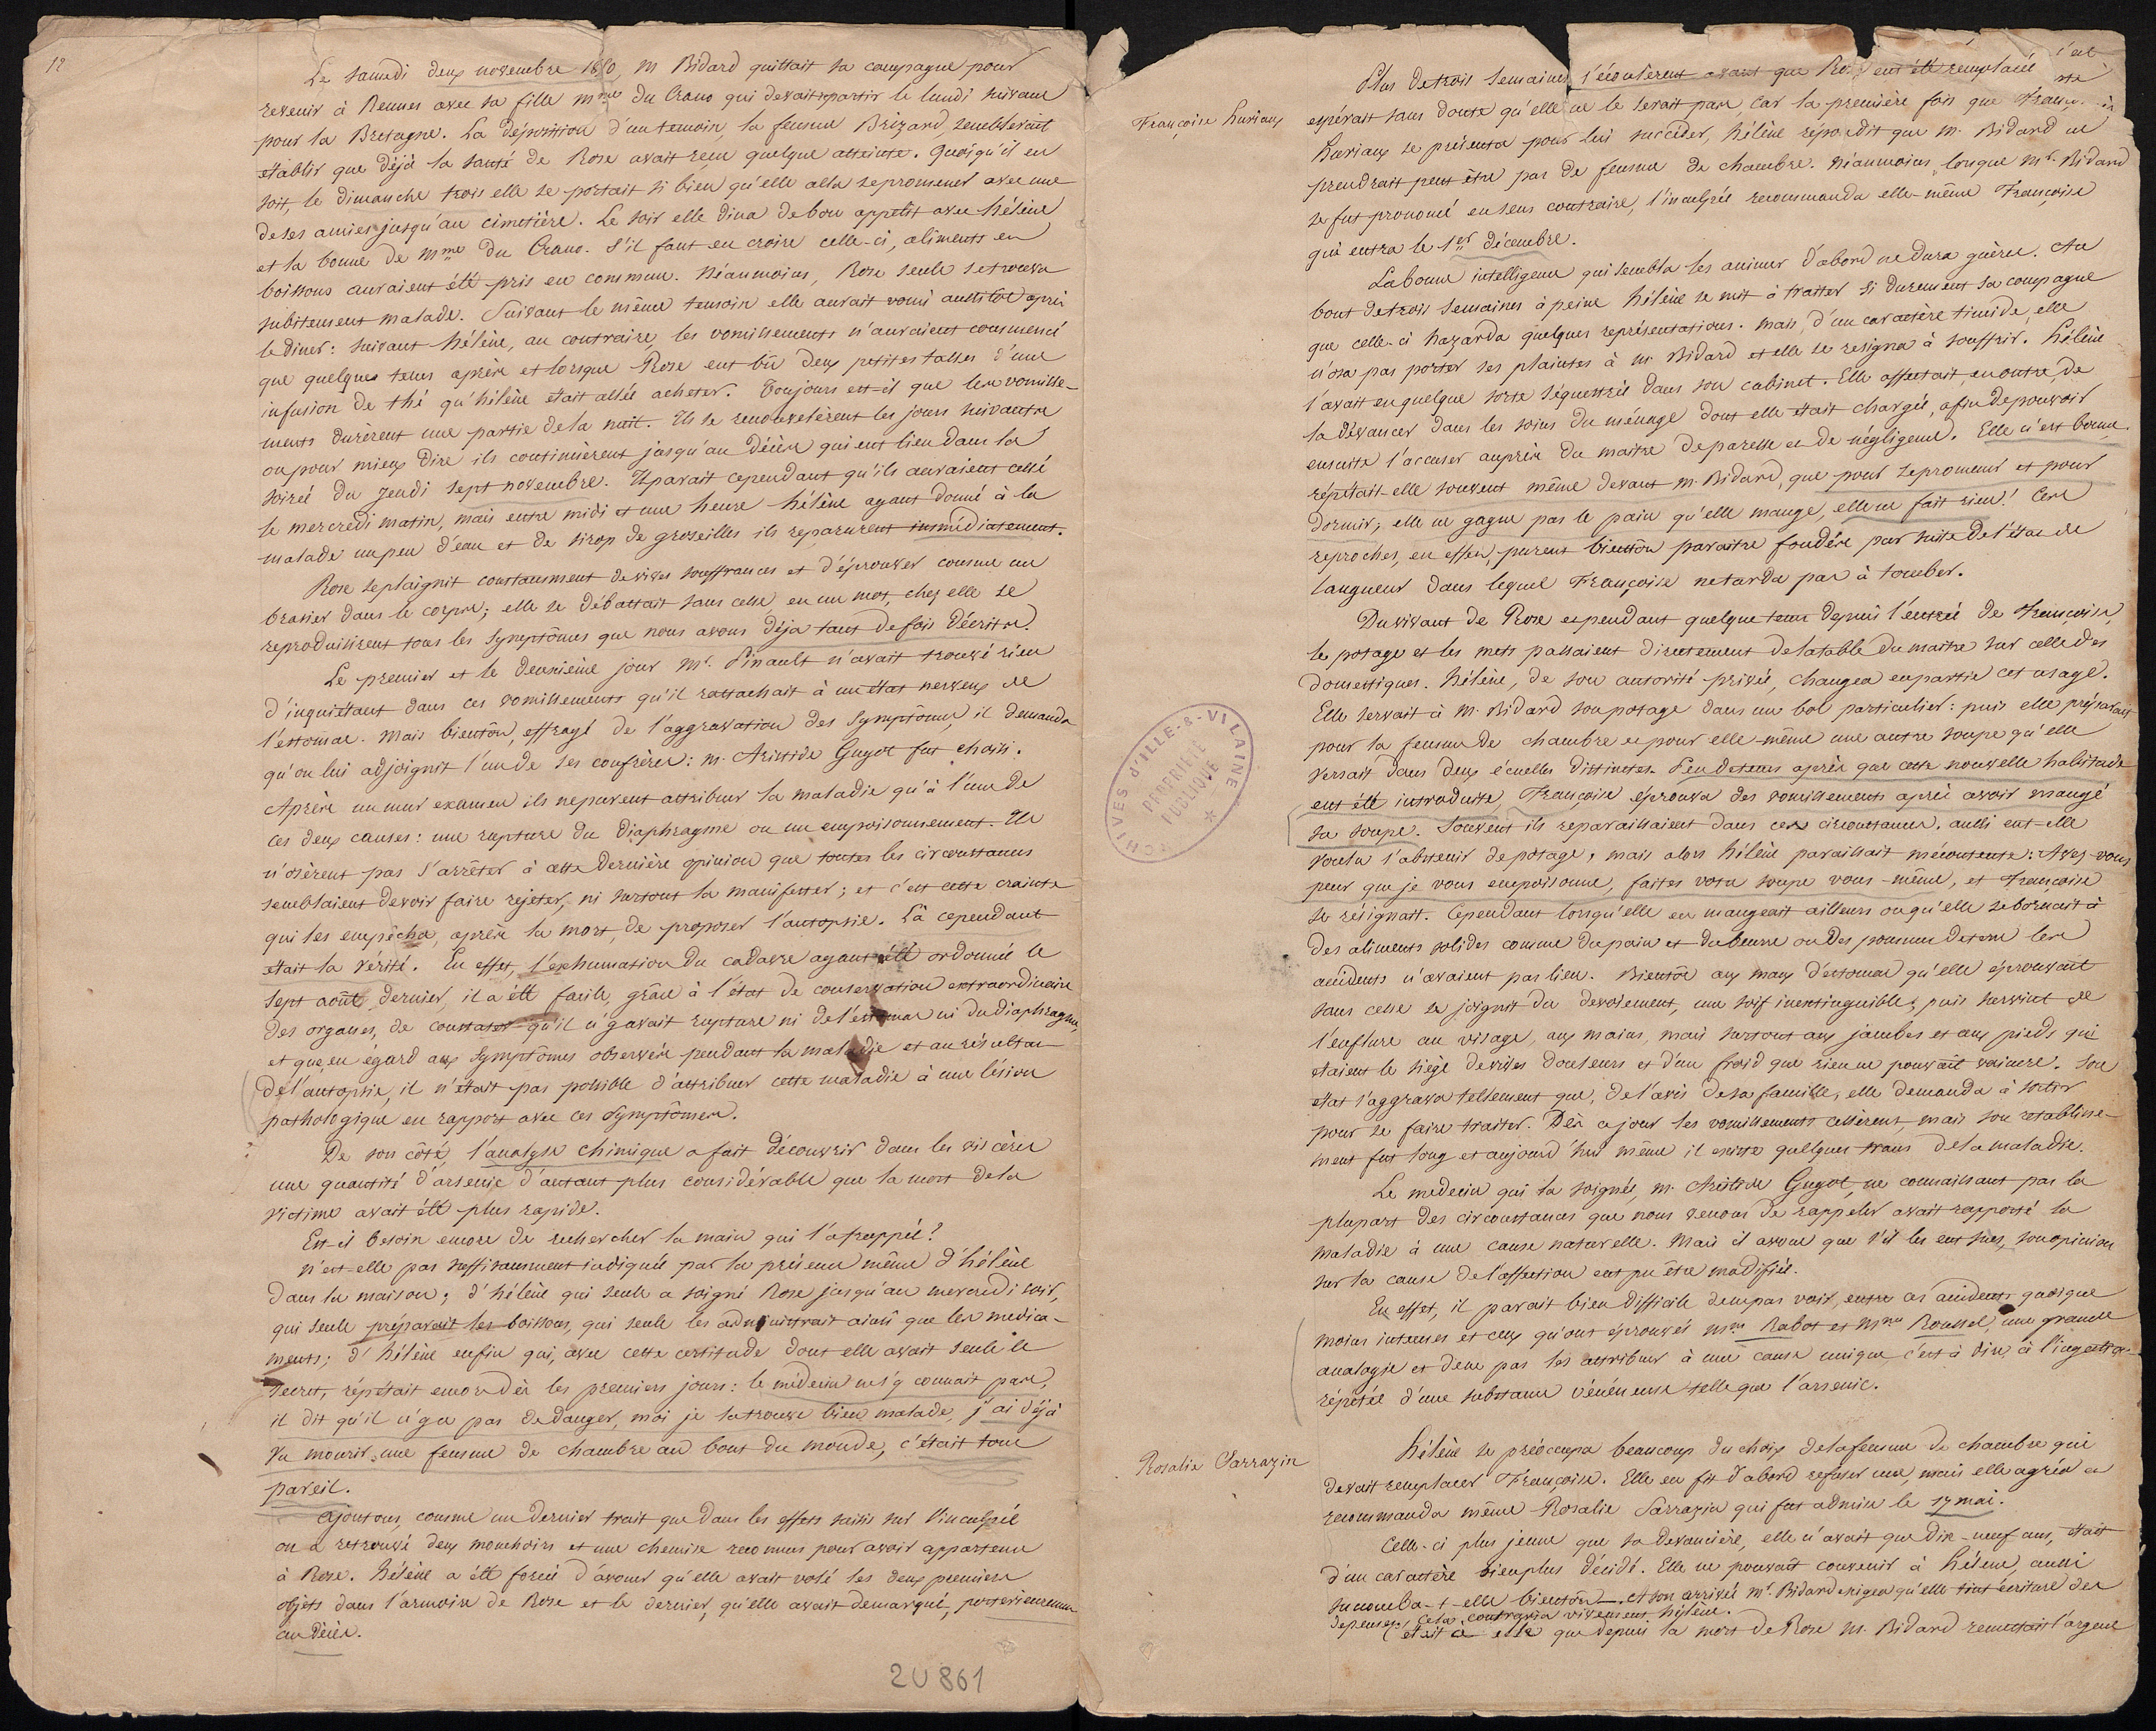 12
Le samedi deux novembre 1850, M Bidard quittait sa campagne pour
revenir à Rennes avec sa fille Mme du Crano qui devait partir le lundi suivant
pour la Bretagne. La déposition d'un temoin, la femme Brizard, semblerait
établir que déjà la santé de Rose avait reçu quelque atteinte. Quoiqu'il en
soit, le dimanche trois elle se portait si bien qu'elle alla se promener avec une
de ses amies jusqu'au cimetière. Le soir elle dina de bon appetit avec hélène
et la bonne de Mme du Crano. S'il faut en croire celle-ci, aliments et
boissons auraient été pris en commun. Néanmoins, Rose seule se trouva
subitement malade. Suivant le même temoin elle aurait vomi aussitôt après
le diner : suivant hélène, au contraire, les vomissements n'auraient commencé
que quelques tems après et lorsque Rose eut bû deux petites tasses d'une
infusion de thé qu'hélène était allée acheter. Toujours est-il que les vomisse-
ments durèrent une partie de la nuit. Ils se renouvelèrent les jours suivants
ou pour mieux dire ils continuèrent jusqu'au décès qui eut lieu dans la
soirée du jeudi sept novembre. Il parait cependant qu'ils auraient cessé
le mercredi matin, mais entre midi et une heure hélène ayant donné à la
malade un peu d'eau et de sirop de groseilles ils reparurent immédiatement.
Rose se plaignit constamment de vives souffrances et d'éprouver comme un
brasier dans le corps ; elle se débattait sans cesse, en un mot, chez elle se
reproduisirent tous les symptômes que nous avons déja tant de fois décrits.
Le premier et le deuxième jour Mr. Pinault n'avait trouvé rien
d'inquiétant dans ces vomissements qu'il rattachait à un état nerveux de
l'estomac. Mais bientôt, effrayé de l'aggravation des symptômes, il demanda
qu'on lui adjoignit l'un de ses confrères : M. Aristide Guyot fut choisi.
Après un mur examen ils ne purent attribuer la maladie qu'à l'une de
ces deux causes : une rupture du diaphragme ou un empoisonnement. Ils
n'osèrent pas s'arrêter à cette dernière opinion que toutes les circonstances
semblaient devoir faire rejeter, ni surtout la manifester ; et c'est cette crainte
qui les empêcha, après la mort, de proposer l'autopsie. Là cependant
était la vérité. En effet, l'exhumation du cadavre ayant été ordonnée le
sept août dernier, il a été facile, grâce à l'état de conservation extraordinaire
des organes, de constater qu'il n'y avait rupture ni de l'estomac ni du diaphragme
et que eu égard aux symptômes observés pendant la maladie et au résultat
de l'autopsie, il n'était pas possible d'attribuer cette maladie à une lésion
pathologique en rapport avec ces symptômes.
De son côté, l'analyse chimique a fait découvrir dans les viscères
une quantité d'arsenic d'autant plus considérable que la mort de la
victime avait été plus rapide.
Est-il besoin encore de rechercher la main qui l'a frappée ?
N'est-elle pas suffisamment indiquée par la présence même d'hélène
dans la maison ; d'hélène qui seule a soigné Rose jusqu'au mercredi soir,
qui seule préparait les boissons, qui seule les administrait ainsi que les médica-
ments ; d'hélène enfin qui, avec cette certitude dont elle avait seule le
secret, répétait encore dès les premiers jours : le médecin ne s'y connait pas,
il dit qu'il n'y a pas de danger, moi je la trouve bien malade, j'ai déjà
vu mourir une femme de chambre au bout du monde, c'était tout
pareil.
Ajoutons, comme un dernier trait que dans les effets saisis sur l'inculpée
on a retrouvé deux mouchoirs et une chemise reconnus pour avoir appartenu
à Rose. Hélène a été forcée d'avouer qu'elle avait volé les deux premiers
objets dans l'armoire de Rose et le dernier, qu'elle avait demarqué, postérieurement
au décès.
2U861
Plus de trois semaines s'écoulerent avant que Rose eut été remplacée
espérait sans doute qu'elle ne le serait pas, car la première fois que Franç
Françoise Huriaux
Huriaux se présenta pour lui succéder, hélène répondit que M. Bidard ne
prendrait peut être pas de femme de chambre. Néanmoins, lorsque Mr. Bidard
se fut prononcé en sens contraire, l'inculpée recommanda elle-même Françoise
qui entra le 1er décembre.
La bonne intelligence qui sembla les animer d'abord ne dura guère. Au
bout de trois semaines à peine hélène se mit à traiter si durement sa compagne
que celle-ci hazarda quelques représentations. Mais, d'un caractère timide, elle
n'osa pas porter ses plaintes à M. Bidard et elle se resigna à souffrir. Hélène
l'avait en quelque sorte séquestrée dans son cabinet. Elle affectait, en outre, de
la dévancer dans les soins du ménage dont elle était chargée, afin de pouvoir
ensuite l'accuser auprès du maitre de paresse et de négligence. Elle n'est bonne,
répétait-elle souvent même devant M. Bidard, que pour se promener et pour
dormir ; elle ne gagne pas le pain qu'elle mange, elle ne fait rien ! Ces
reproches, en effet, purent bientôt paraitre fondés par suite de l'état de
langueur dans lequel Françoise ne tarda pas à tomber.
Du vivant de Rose et pendant quelque tems depuis l'entrée de Françoise,
le potage et les mets passaient directement de la table du maitre sur celle des
domestiques. Hélène, de son autorité privée, changea en partie cet usage.
Elle servait à M. Bidard son potage dans un bol particulier : puis elle préparait
pour la femme de chambre et pour elle-même une autre soupe qu'elle
versait dans deux écuelles distinctes. Peu de tems après que cette nouvelle habitude
eut été introduite, Françoise éprouva des vomissements après avoir mangé
sa soupe. Souvent ils reparaissaient dans ces circonstances. aussi eut-elle
voulu s'abstenir de potage, mais alors hélène paraissait mécontente : Avez-vous
peur que je vous empoisonne, faites votre soupe vous-même, et Françoise
se résignait. Cependant lorsqu'elle en mangeait ailleurs ou qu'elle se bornait à
des aliments solides comme du pain et du beurre ou des pommes de terre les
accidents n'avaient pas lieu. Bientôt aux maux d'estomac qu'elle éprouvait
sans cesse se joignit du devoiement, une soif inextinguible ; puis survint de
l'enflure au visage, aux mains, mais surtout aux jambes et aux pieds qui
étaient le siège de vives douleurs et d'un froid que rien ne pouvait vaincre. Son
état s'aggrava tellement que, de l'avis de sa famille, elle demanda à sortir
pour se faire traiter. Dès ce jour les vomissements cessèrent, mais son rétablisse-
ment fut long et aujourd'hui même il existe quelques traces de la maladie.
Le medecin qui l'a soignée, M. Aristide Guyot, ne connaissant pas la
plupart des circonstances que nous venons de rappeler avait rapporté la
maladie à une cause naturelle. Mais il avoue que s'il les eut sues, son opinion
sur la cause de l'affection eut pu être modifiée.
En effet, il parait bien difficile de ne pas voir, entre ces accidents quoique
moins intenses et ceux qu'ont éprouvés Mme Rabot et Mme Roussel, une grande
analogie et de ne pas les attribuer à une cause unique, c'est à dire à l'ingestion
répétée d'une substance vénéneuse telle que l'arsenic.
Rosalie Sarrazin
Hélène se préoccupa beaucoup du choix de la femme de chambre qui
devait remplacer Françoise. Elle en fit d'abord refuser une, mais elle agréa et
recommanda même Rosalie Sarrazin qui fut admise le 17 mai.
Celle-ci plus jeune que sa devancière, elle n'avait que dix-neuf ans, était
d'un caractère bien plus décidé. Elle ne pouvait convenir à hélène, aussi
succomba-t-elle bientôt. A son arrivée Mr. Bidard exigea qu'elle tint écriture des
depenses, cela contraria vivement hélène.
c'était à elle que depuis la mort de Rose M. Bidard remettait l'argent
ARCHIVES d'ILLE-&-VILAINE
PROPRIÉTÉ
PUBLIQUE